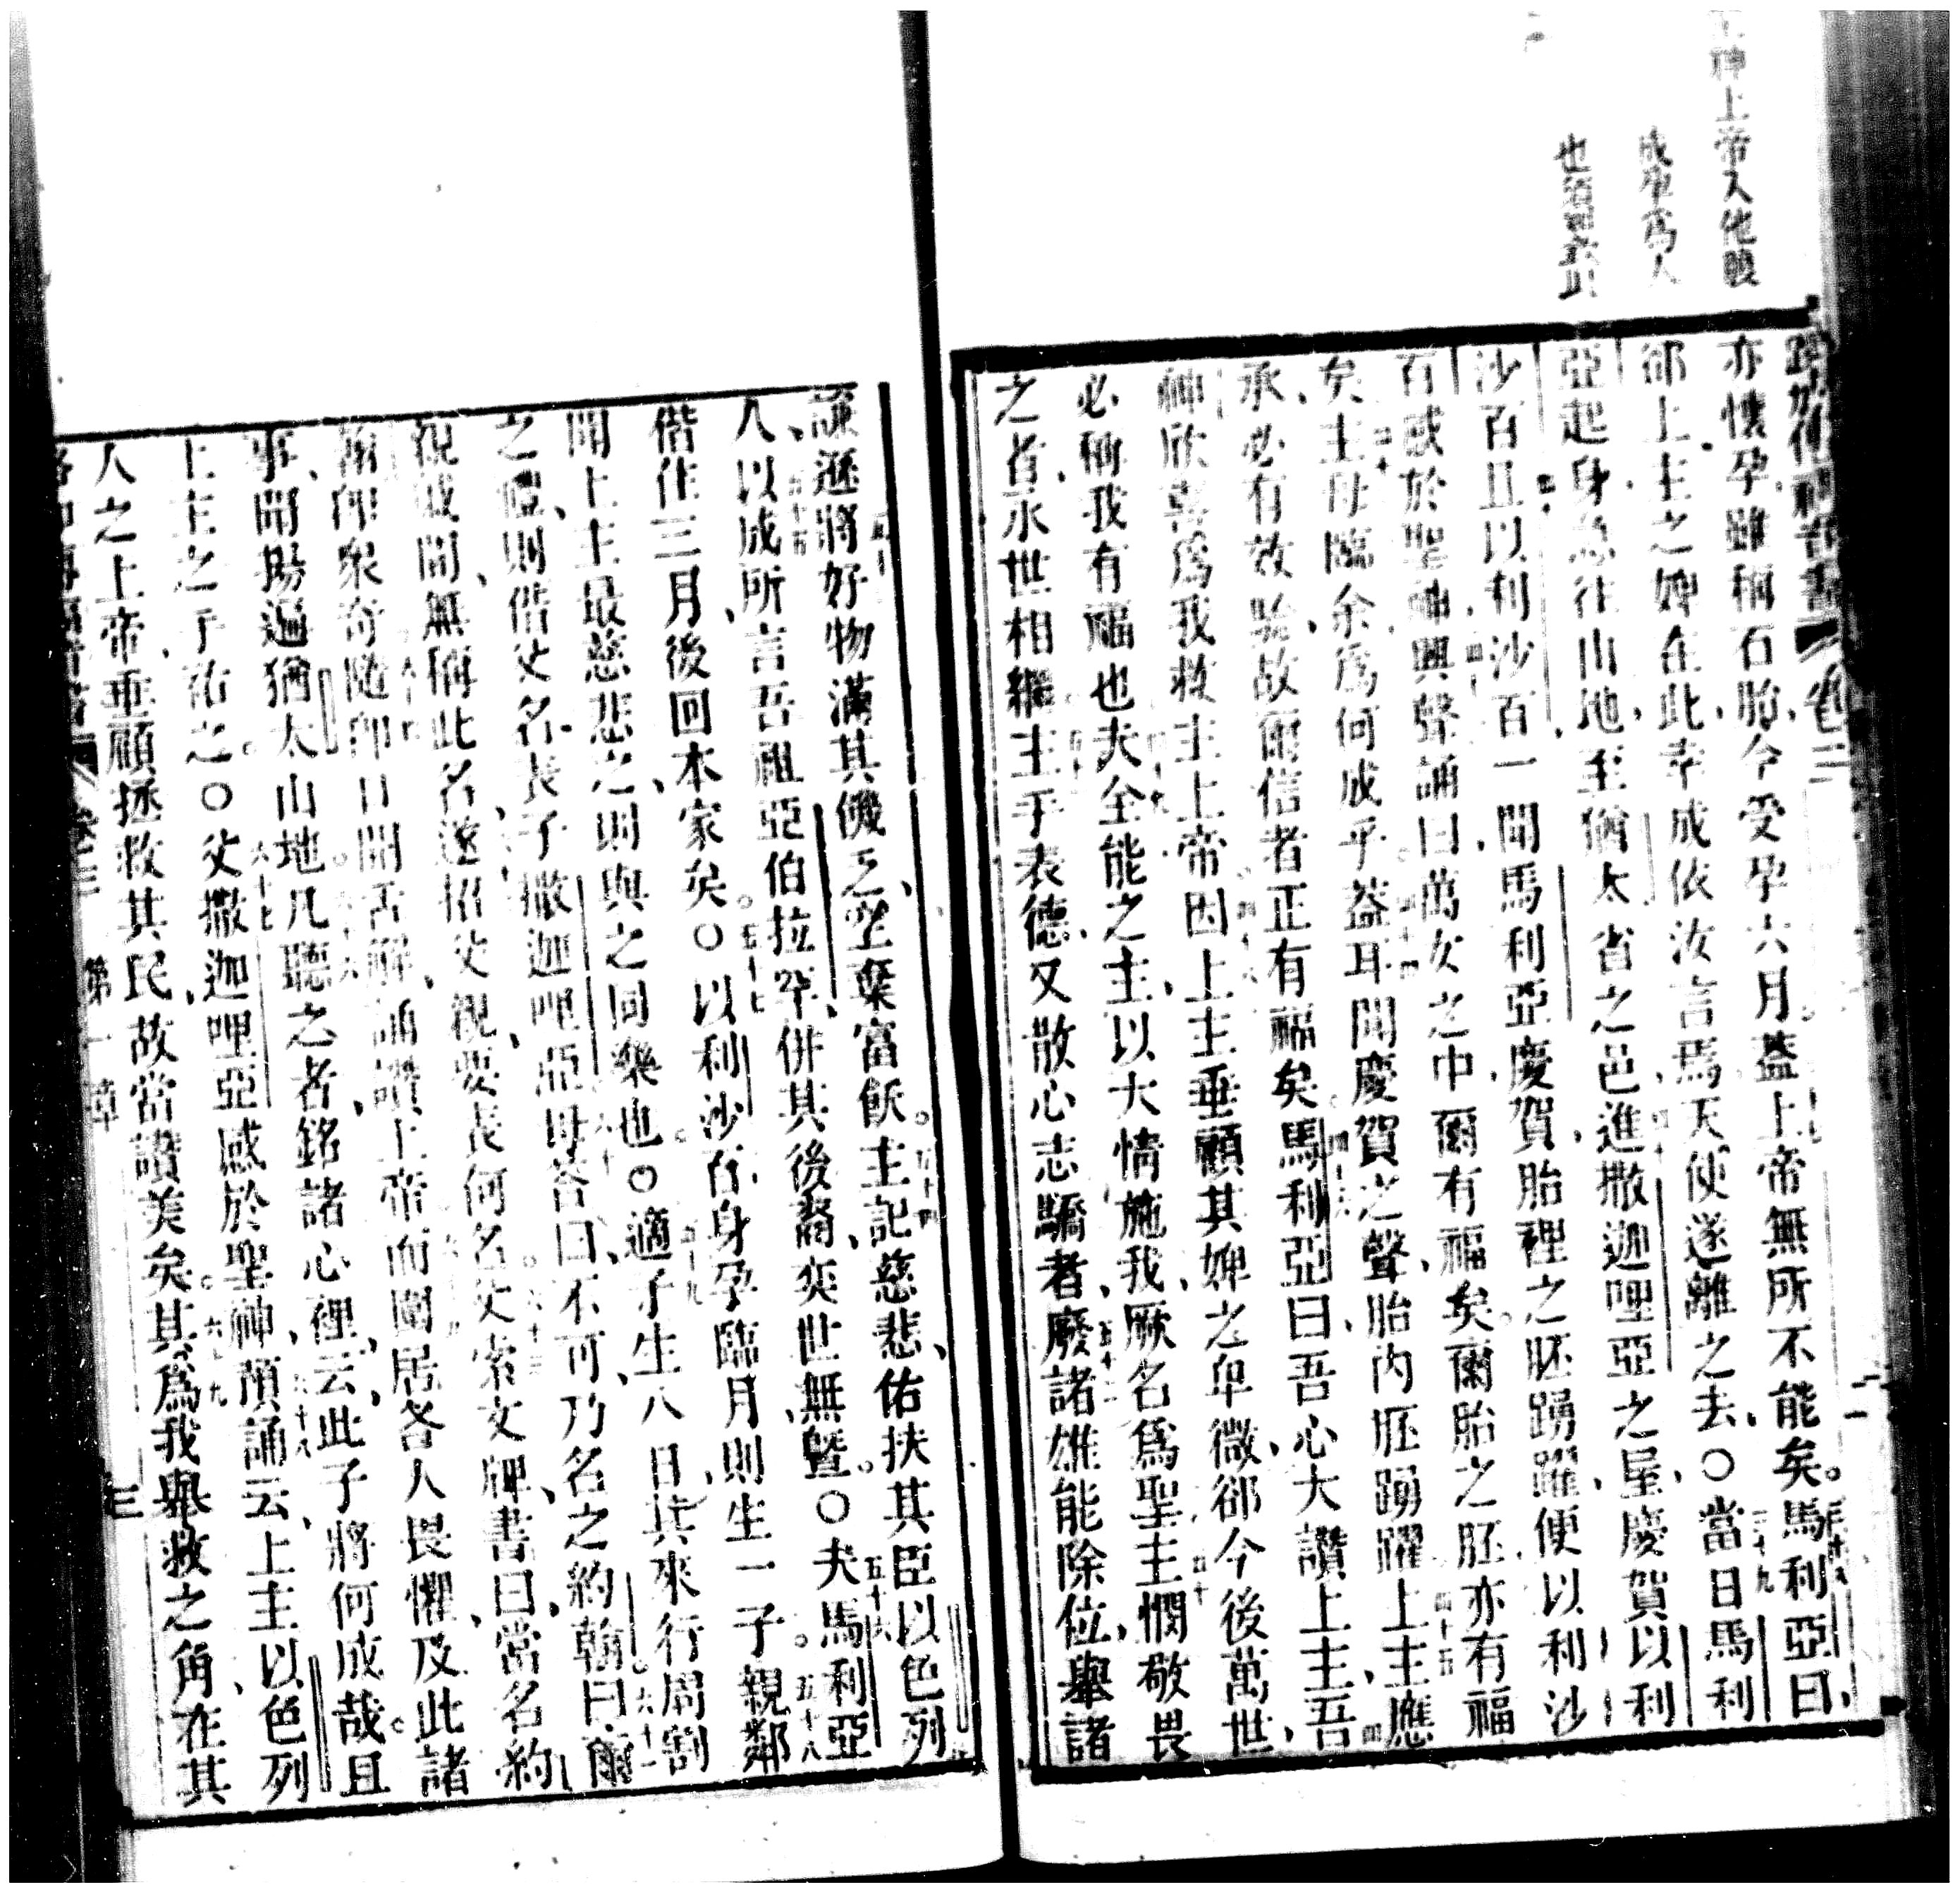 神上帝入他
成 爲人
也
傳福音書 卷三
亦懷孕雖稱石胎今受孕六月葢上帝無所不能矣馬利亞曰
郤上主之婢在此幸成依汝言焉天使遂離之去〇當日馬利
亞起身急往山地至猶太省之邑進撒迦哩亞之屋慶賀以利
沙百且以利沙百一聞馬利亞慶賀胎裡之胚踴躍便以利沙
百感於聖神興聲誦曰萬女之中爾有福矣爾胎之胚亦有福
矣主母臨余爲何成乎葢耳聞慶賀之聲胎內胚踴躍上主應
承必有效驗故爾信者正有福矣馬利亞曰吾心大讚上主吾
神欣喜爲我救主上帝因上主垂顧其婢之卑微郤今後萬世
必稱我有福也夫全能之主以大情施我厥名爲聖主憫敬畏
之者永世相繼主手表德又散心志驕者廢諸雄能除位舉諸
謙遜將好物滿其饑乏空棄富飫主記慈悲佑扶其臣以色列
人以成所言吾祖亞伯拉罕併其後裔奕世無曁〇夫馬利亞
偕住三月後回本家矣〇以利沙百身孕臨月則生一子親鄰
聞上主最慈悲之則與之同樂也〇適子生八日其來行周割
之禮則偕父名名長子撒迦哩亞母答曰不可乃名之約翰曰爾
親戚間無稱此名遂招父視要長何名父索文牌書曰當名約
翰卽衆奇隨卽口開舌解誦讚上帝而圍居各人畏懼及此諸
事聞揚遍猶太山地凡聽之者銘諸心裡云此子將何成哉且
上主之手祐之〇父撒迦哩亞感於聖神預誦云上主以色列
人之上帝垂顧拯救其民故當讃美矣其爲我舉救之角在其
卷三 第一章 三